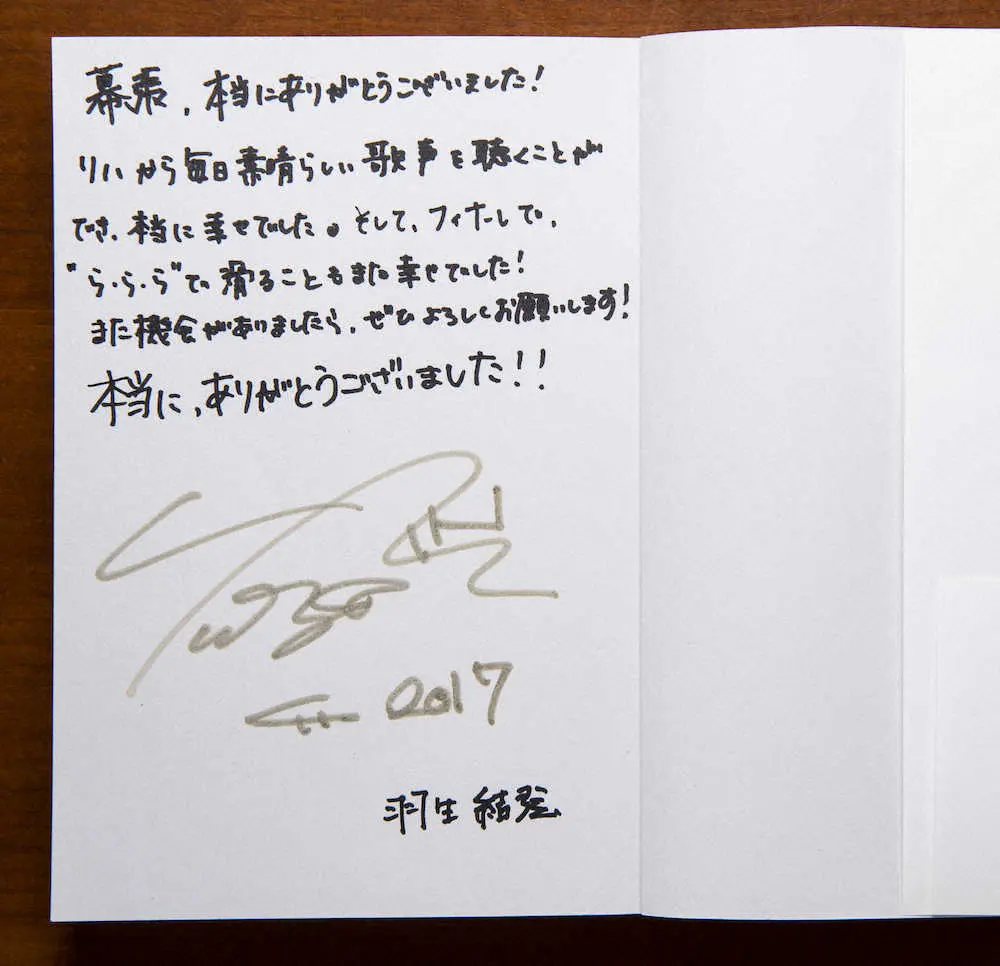 幕張、本当にありがとうございました!
リハから毎日素晴らしい歌声を聴くことが
でき、本当に幸せでした。そして、フィナーレで、
"ら・ら・ら"で滑ることもまた幸せでした!
また機会がありましたら、ぜひよろしくお願いします!
本当に、ありがとうございました!!
2017
羽生結弦